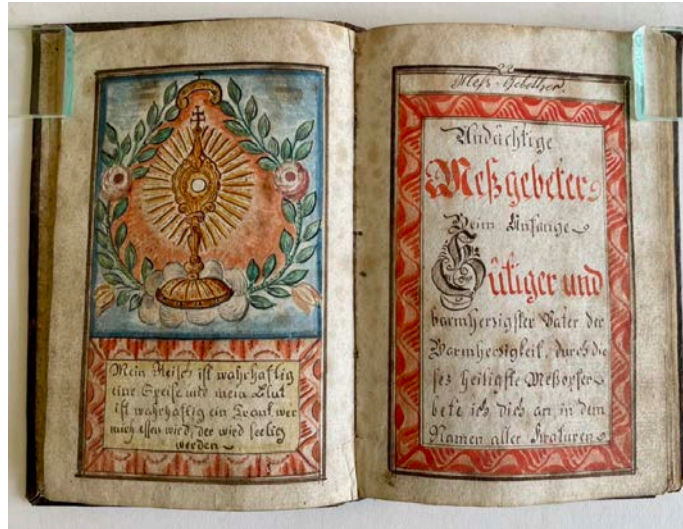 Mein Fleisch ist wahrhaftig
eine Speise und mein Blut
ist wahrhaftig ein Trank, wer
mich essen wird, der wird seelig
werden
22
Meß-Gebether.
Andächtige
Meßgebeter
Beim Anfange
Gütiger und
barmherzigster Vater der
Barmherzigkeit, durch die
ses heiligste Meßopfer
bete ich Dich an in dem
Namen aller Kraturen